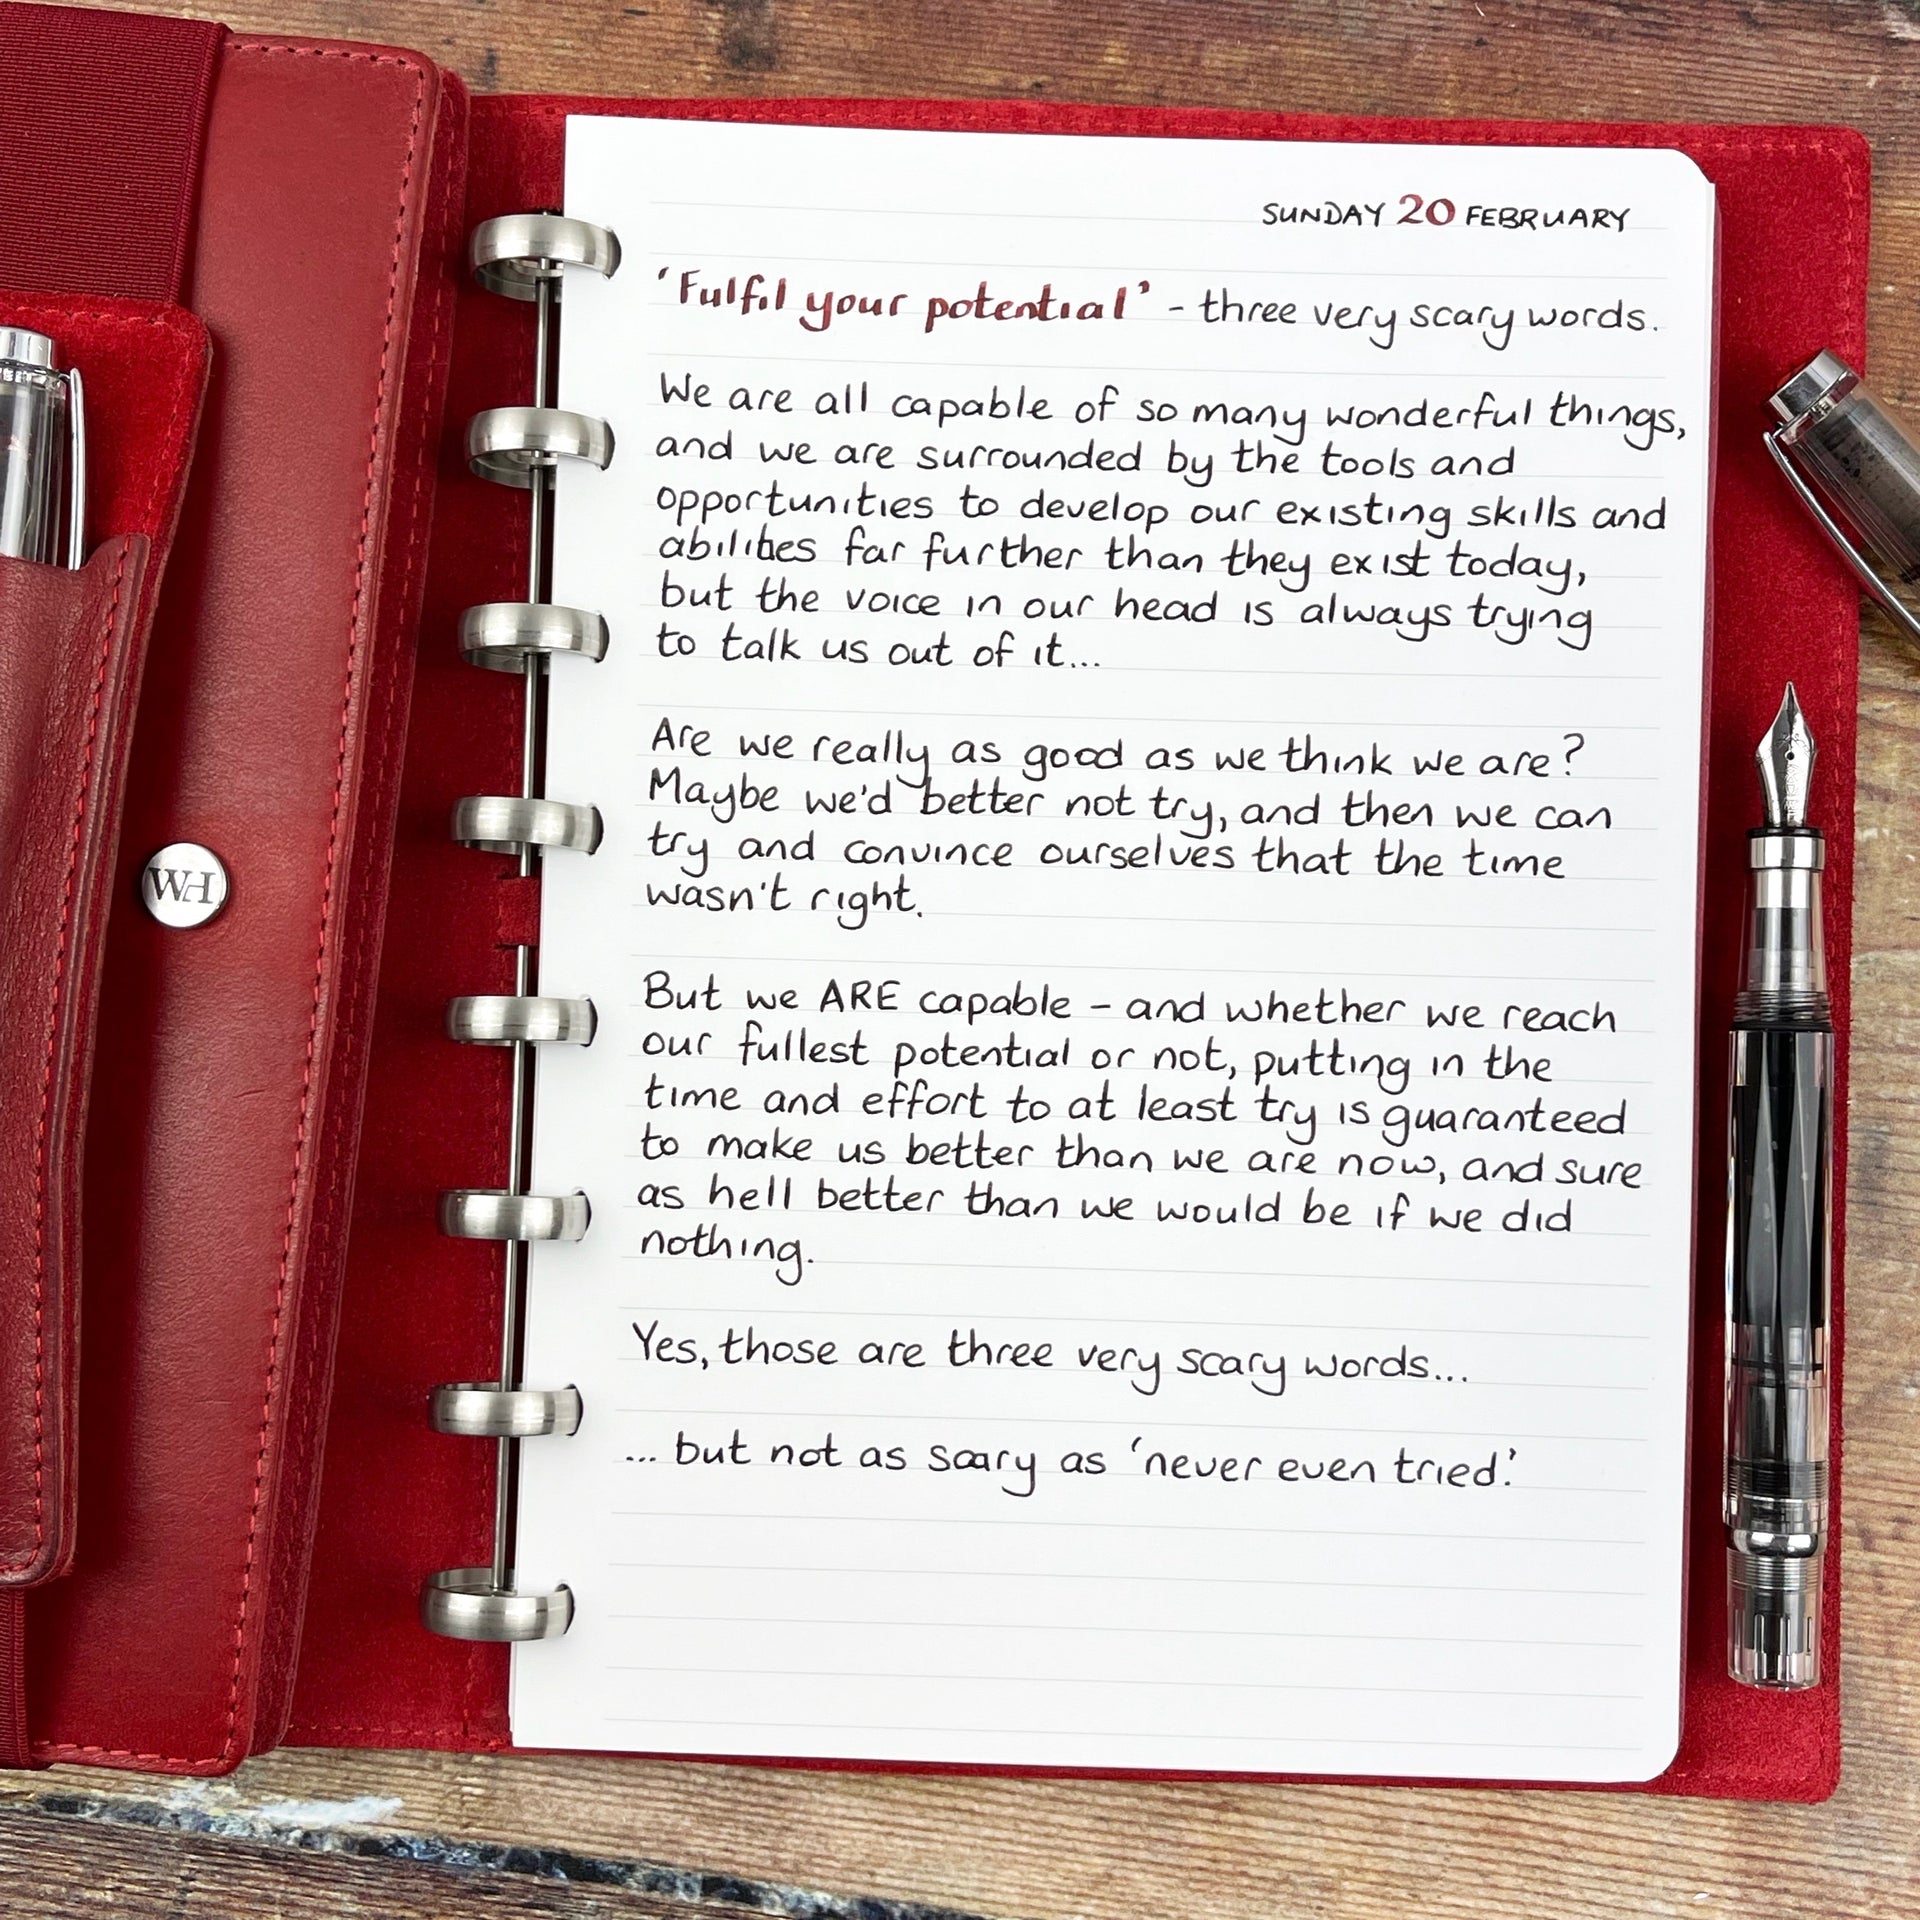 SUNDAY 20 FEBRUARY
'Fulfil your potential' - three very scary words.
We are all capable of so many wonderful things,
and we are surrounded by the tools and
opportunities to develop our existing skills and
abilities far further than they exist today,
but the voice in our head is always trying
to talk us out of it...
Are we really as good as we think we are?
Maybe we'd better not try, and then we can
try and convince ourselves that the time
wasn't right.
But we ARE capable - and whether we reach
our fullest potential or not, putting in the
time and effort to at least try is guaranteed
to make us better than we are now, and sure
as hell better than we would be if we did
nothing.
Yes, those are three very scary words...
... but not as scary as 'never even tried.'
WH